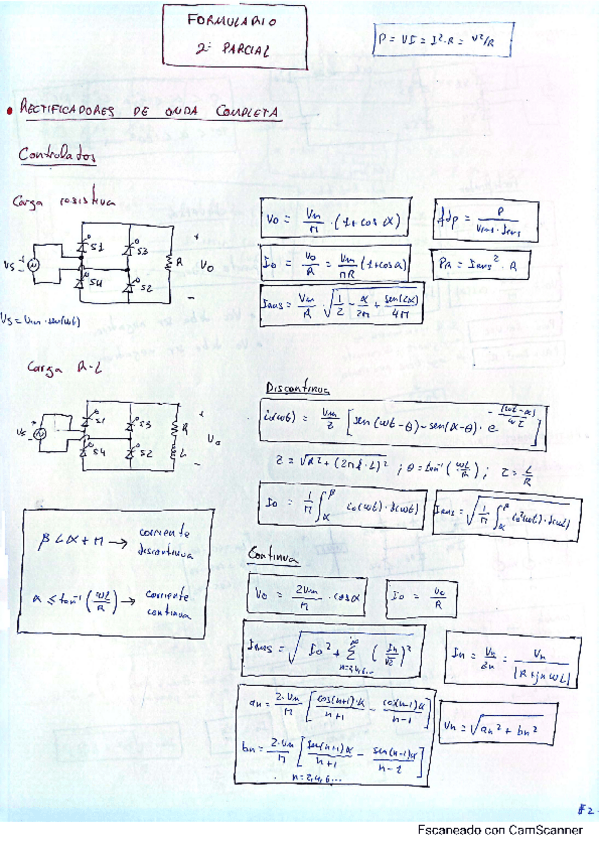 FORMULARIO
2º PARCIAL
P = VI = I²·R = V²/R
• RECTIFICADORES DE ONDA COMPLETA
Controlados
Carga resistiva
S1 S3
S4 S2
R
Vo
Vs
Vs = Vm·sen(ωt)
Vo = Vm/π · (1+cos α)
fdp = P/(Vrms·Irms)
Io = Vo/R = Vm/πR (1+cos α)
PR = Irms² · R
Irms = Vm/R · √(1/2 - α/2π + sen(2α)/4π)
Carga R-L
S1 S3
S4 S2
R
L
Vo
Vs
Discontinua
io(ωt) = Vm/Z [sen(ωt-θ) - sen(α-θ) · e^(-(ωt-α)/ωτ)]
Z = √(R² + (2πf·L)²) ; θ = tan⁻¹(ωL/R) ; τ = L/R
Io = 1/π ∫α^β io(ωt) · d(ωt)
Irms = √(1/π ∫α^β io²(ωt) · d(ωt))
β < α + π → corriente discontinua
α ≤ tan⁻¹(ωL/R) → corriente continua
Continua
Vo = 2Vm/π · cos α
Io = Vo/R
Irms = √(Io² + Σ n=2,4,6... ^∞ (In/√2)²)
In = Vn/Zn = Vn/|R+jnωL|
an = 2·Vm/π [cos(n+1)α/n+1 - cos(n-1)α/n-1]
Vn = √(an² + bn²)
bn = 2·Vm/π [sen(n+1)α/n+1 - sen(n-1)α/n-1]
n=2,4,6...
Escaneado con CamScanner